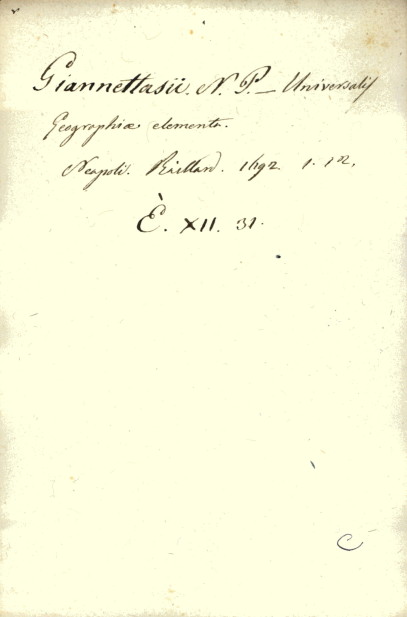 Giannettasii. N. P. — Universalis
Geographiæ elementa.
Neapoli. Raillard. 1692. 1. 12.
È. XII. 31.
C